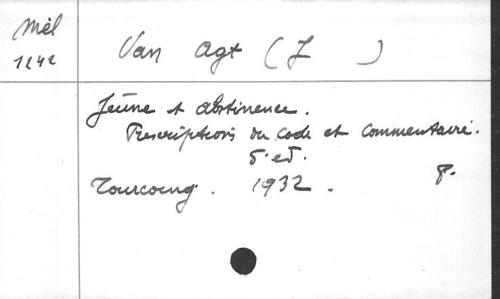 Mél
1242
Van Agt (J )
Jeûne et abstinence.
Prescriptions du Code et commentaire.
5e éd.
Tourcoing. 1932. 8.